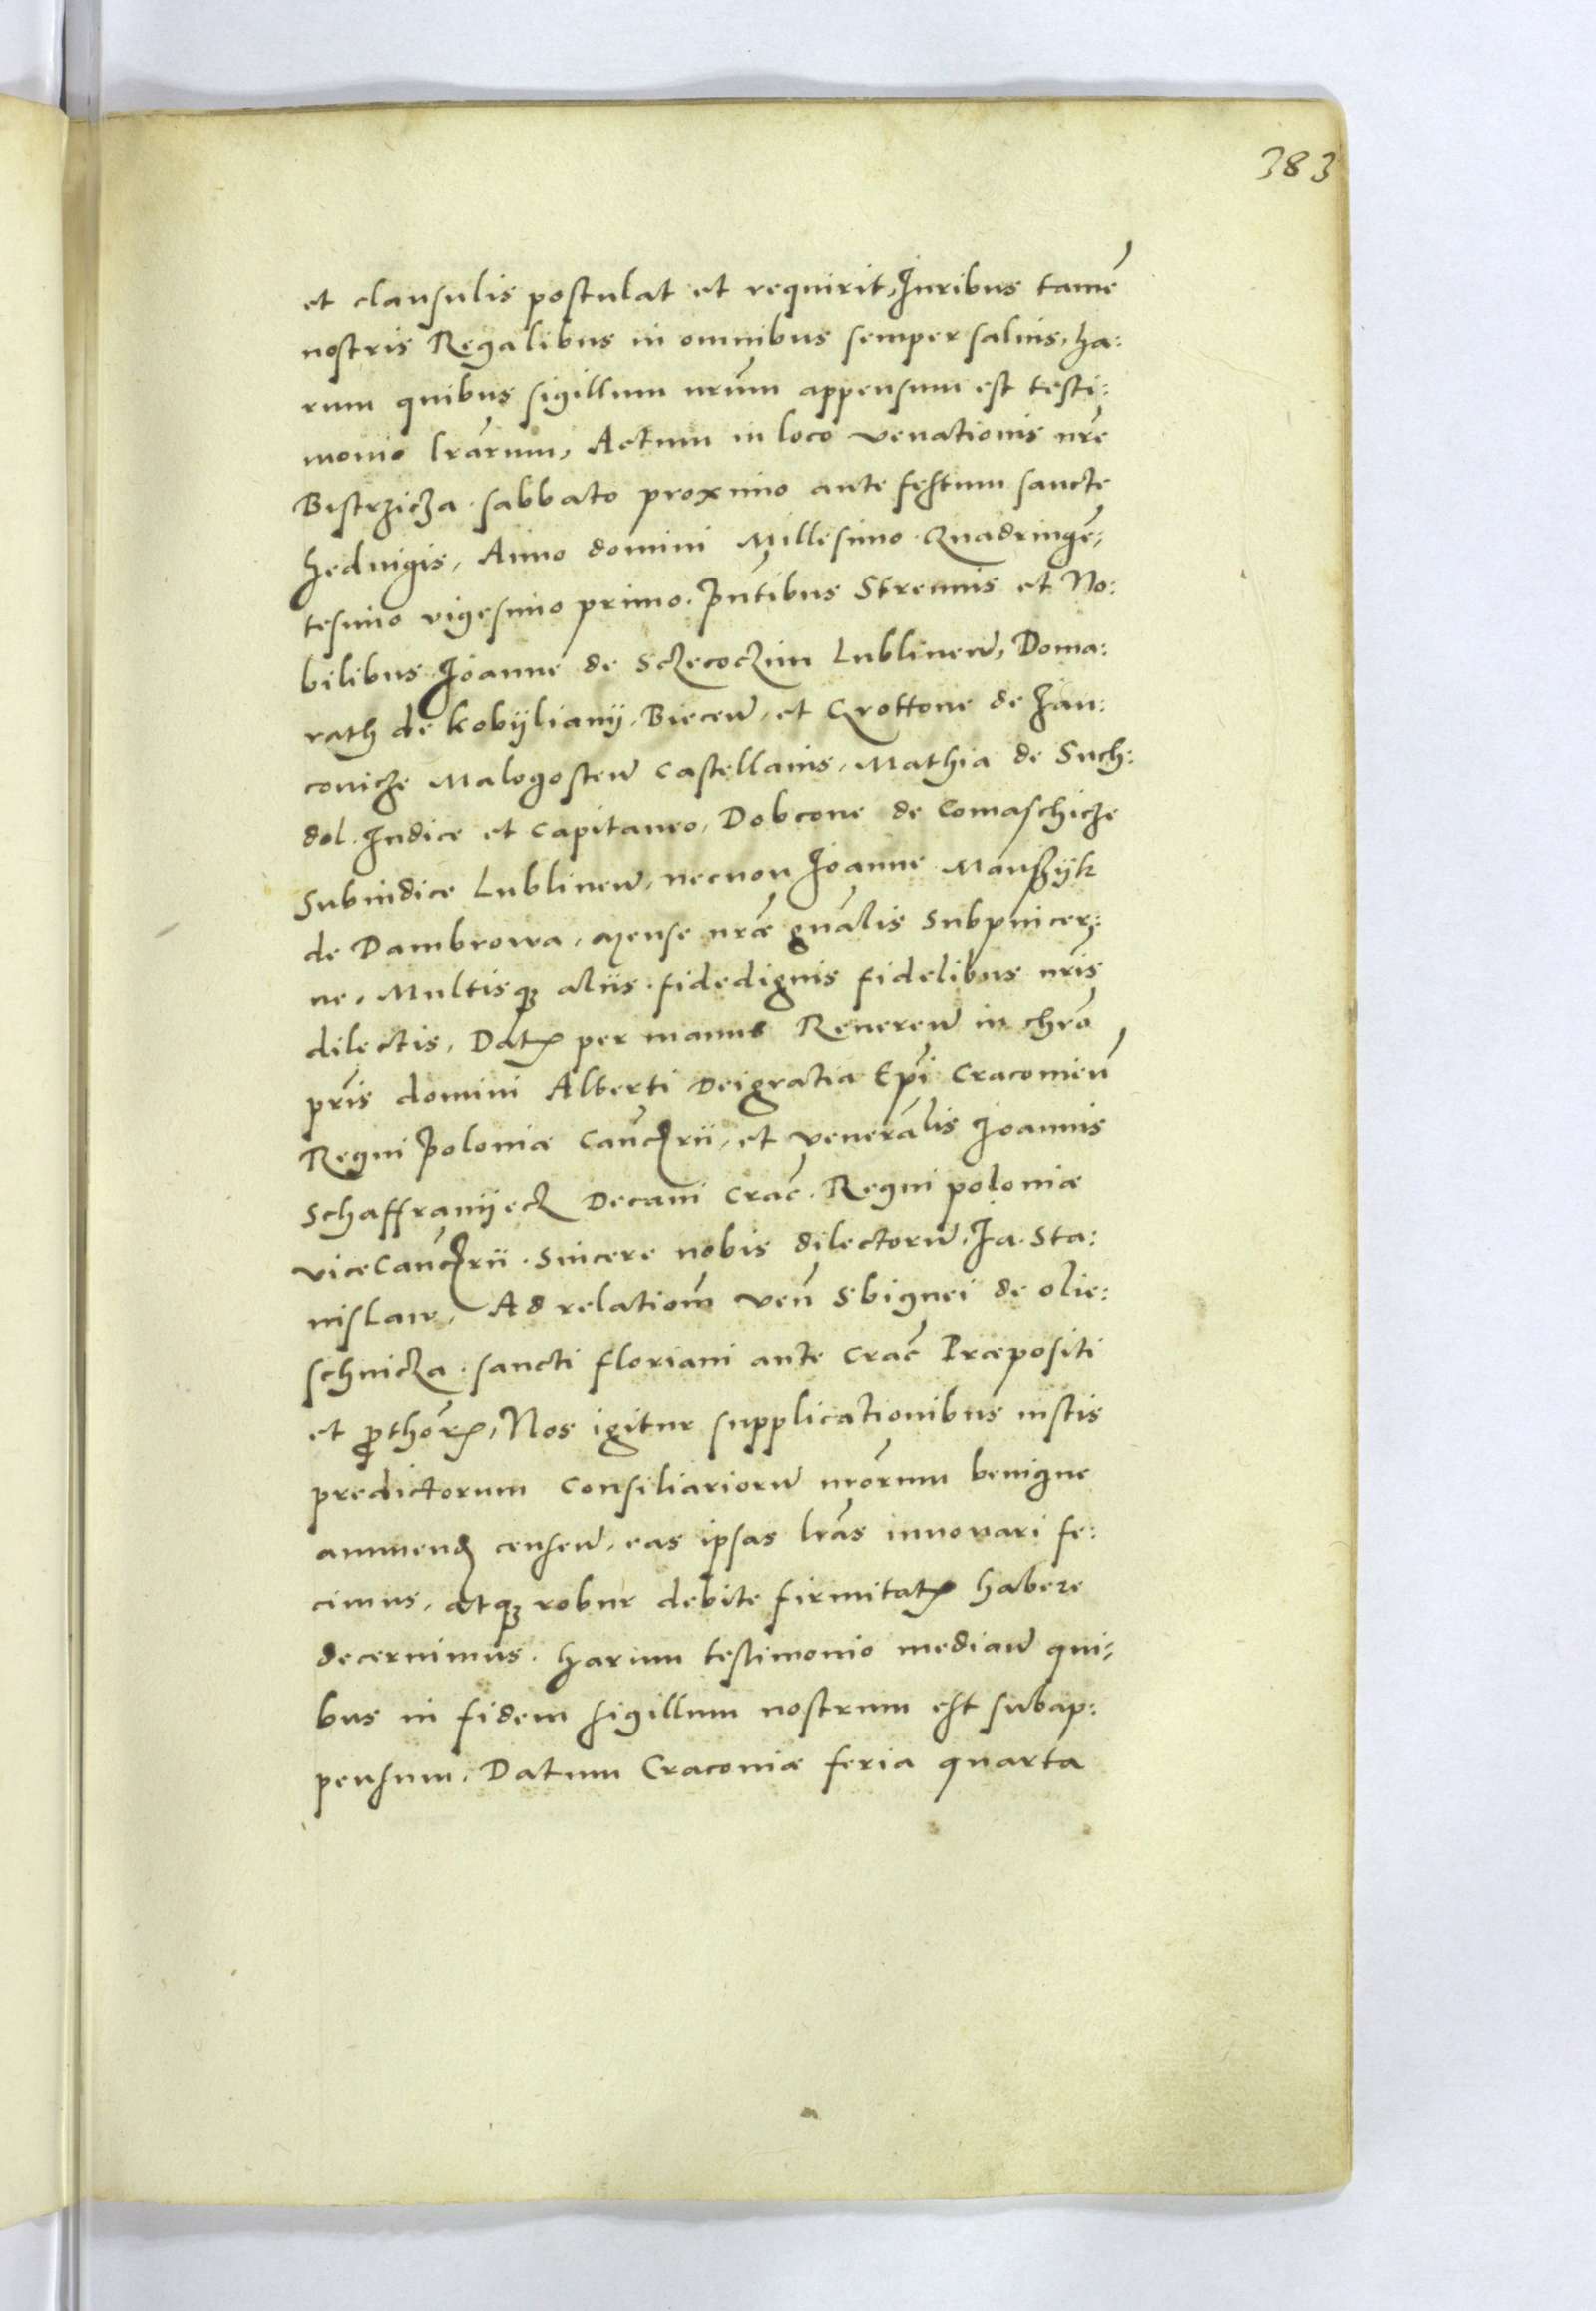 383
et clausulis postulat et requirit, Iuribus tamē
nostris Regalibus in omnibus semper saluis, ha:
rum quibus sigillum nr̄um appensum est testi:
monio lr̄arum, Actum in loco venationis nr̄e
Bistrzicza. sabbato proximo ante festum sancte
hedwigis, Anno domini Millesimo Quadringē,
tesimo vigesimo primo. pn̄tibus Strennis et No:
bilibus Ioanne de Sczecoczim Lublineñ, Doma:
rath de Kobÿlianÿ, Bieceñ, et Grottone de Ian:
conicze Malogosteñ Castellanis, Mathia de Such:
dol. Iudice et Capitaneo, Dobcone de Comaschicze
Subiudice Lublineñ, necnon Ioanne Manszÿk
de Dambrowa, mense nr̄æ gn̄alis Subpincer:
ne, Multisq; aliis. fidedignis fidelibus nr̄is
dilectis, Datꝭ per manus Reuereñ in chr̄o
pr̄is domini Alberti Deigratia Ep̄i Cracouieñ
Regni Poloniæ Canc̄rii, et venerālis Ioannis
Schaffranÿecz Decani Crac̄. Regni poloniæ
viceCanc̄rii. Sincere nobis dilectorū, Ia. Sta:
nislaw, Ad relationm̄ veñ Sbignei de olie:
schnicza. sancti floriani ante Crac̄ Præpositi
et ꝓthōrꝭ, Nos igitur supplicationibus iustis
predictorum Consiliariorū nrōrum benigne
annuend̄ censeñ, eas ipsas lr̄as innouari fe:
cimus, atq; robur debite firmitatꝭ habere
decernimus. harum testimonio mediañ qui,
bus in fidem sigillum nostrum est subap:
pensum. Datum Cracouiæ feria quarta